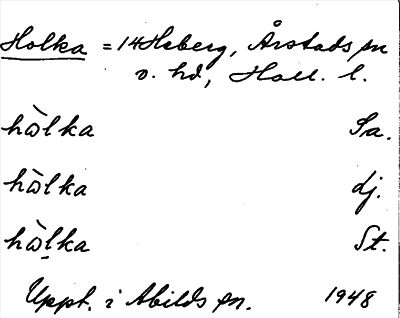 Holka = 14 Heberg, Årstads sn
o. hd, Hall. l.
hòlka Sa.
hòlka dj.
hòlka St.
Uppt. i Abilds sn. 1948